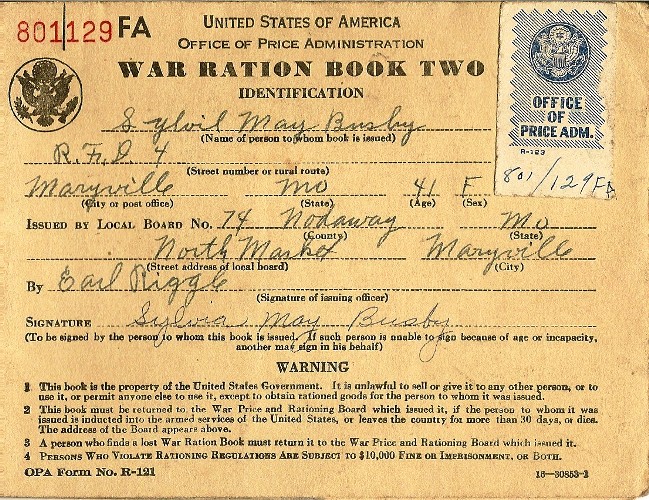 801129 FA
UNITED STATES OF AMERICA
OFFICE OF PRICE ADMINISTRATION
WAR RATION BOOK TWO
IDENTIFICATION
OFFICE
OF
PRICE ADM.
R-123
801/129FA
Sylvil May Busby
(Name of person to whom book is issued)
R.F.D 4
(Street number or rural route)
Maryville Mo 41 F
(City or post office) (State) (Age) (Sex)
ISSUED BY LOCAL BOARD No. 74 Nodaway Mo
(County) (State)
North Market Maryville
(Street address of local board) (City)
By Earl Riggle
(Signature of issuing officer)
SIGNATURE Sylvia May Busby
(To be signed by the person to whom this book is issued. If such person is unable to sign because of age or incapacity,
another may sign in his behalf)
WARNING
1 This book is the property of the United States Government. It is unlawful to sell or give it to any other person, or to
use it, or permit anyone else to use it, except to obtain rationed goods for the person to whom it was issued.
2 This book must be returned to the War Price and Rationing Board which issued it, if the person to whom it was
issued is inducted into the armed services of the United States, or leaves the country for more than 30 days, or dies.
The address of the Board appears above.
3 A person who finds a lost War Ration Book must return it to the War Price and Rationing Board which issued it.
4 PERSONS WHO VIOLATE RATIONING REGULATIONS ARE SUBJECT TO $10,000 FINE OR IMPRISONMENT, OR BOTH.
OPA FORM No. R-121 16—30853-1